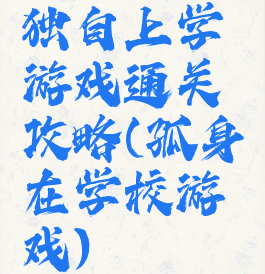 独自上学
游戏通关
攻略(孤身
在学校游
戏)